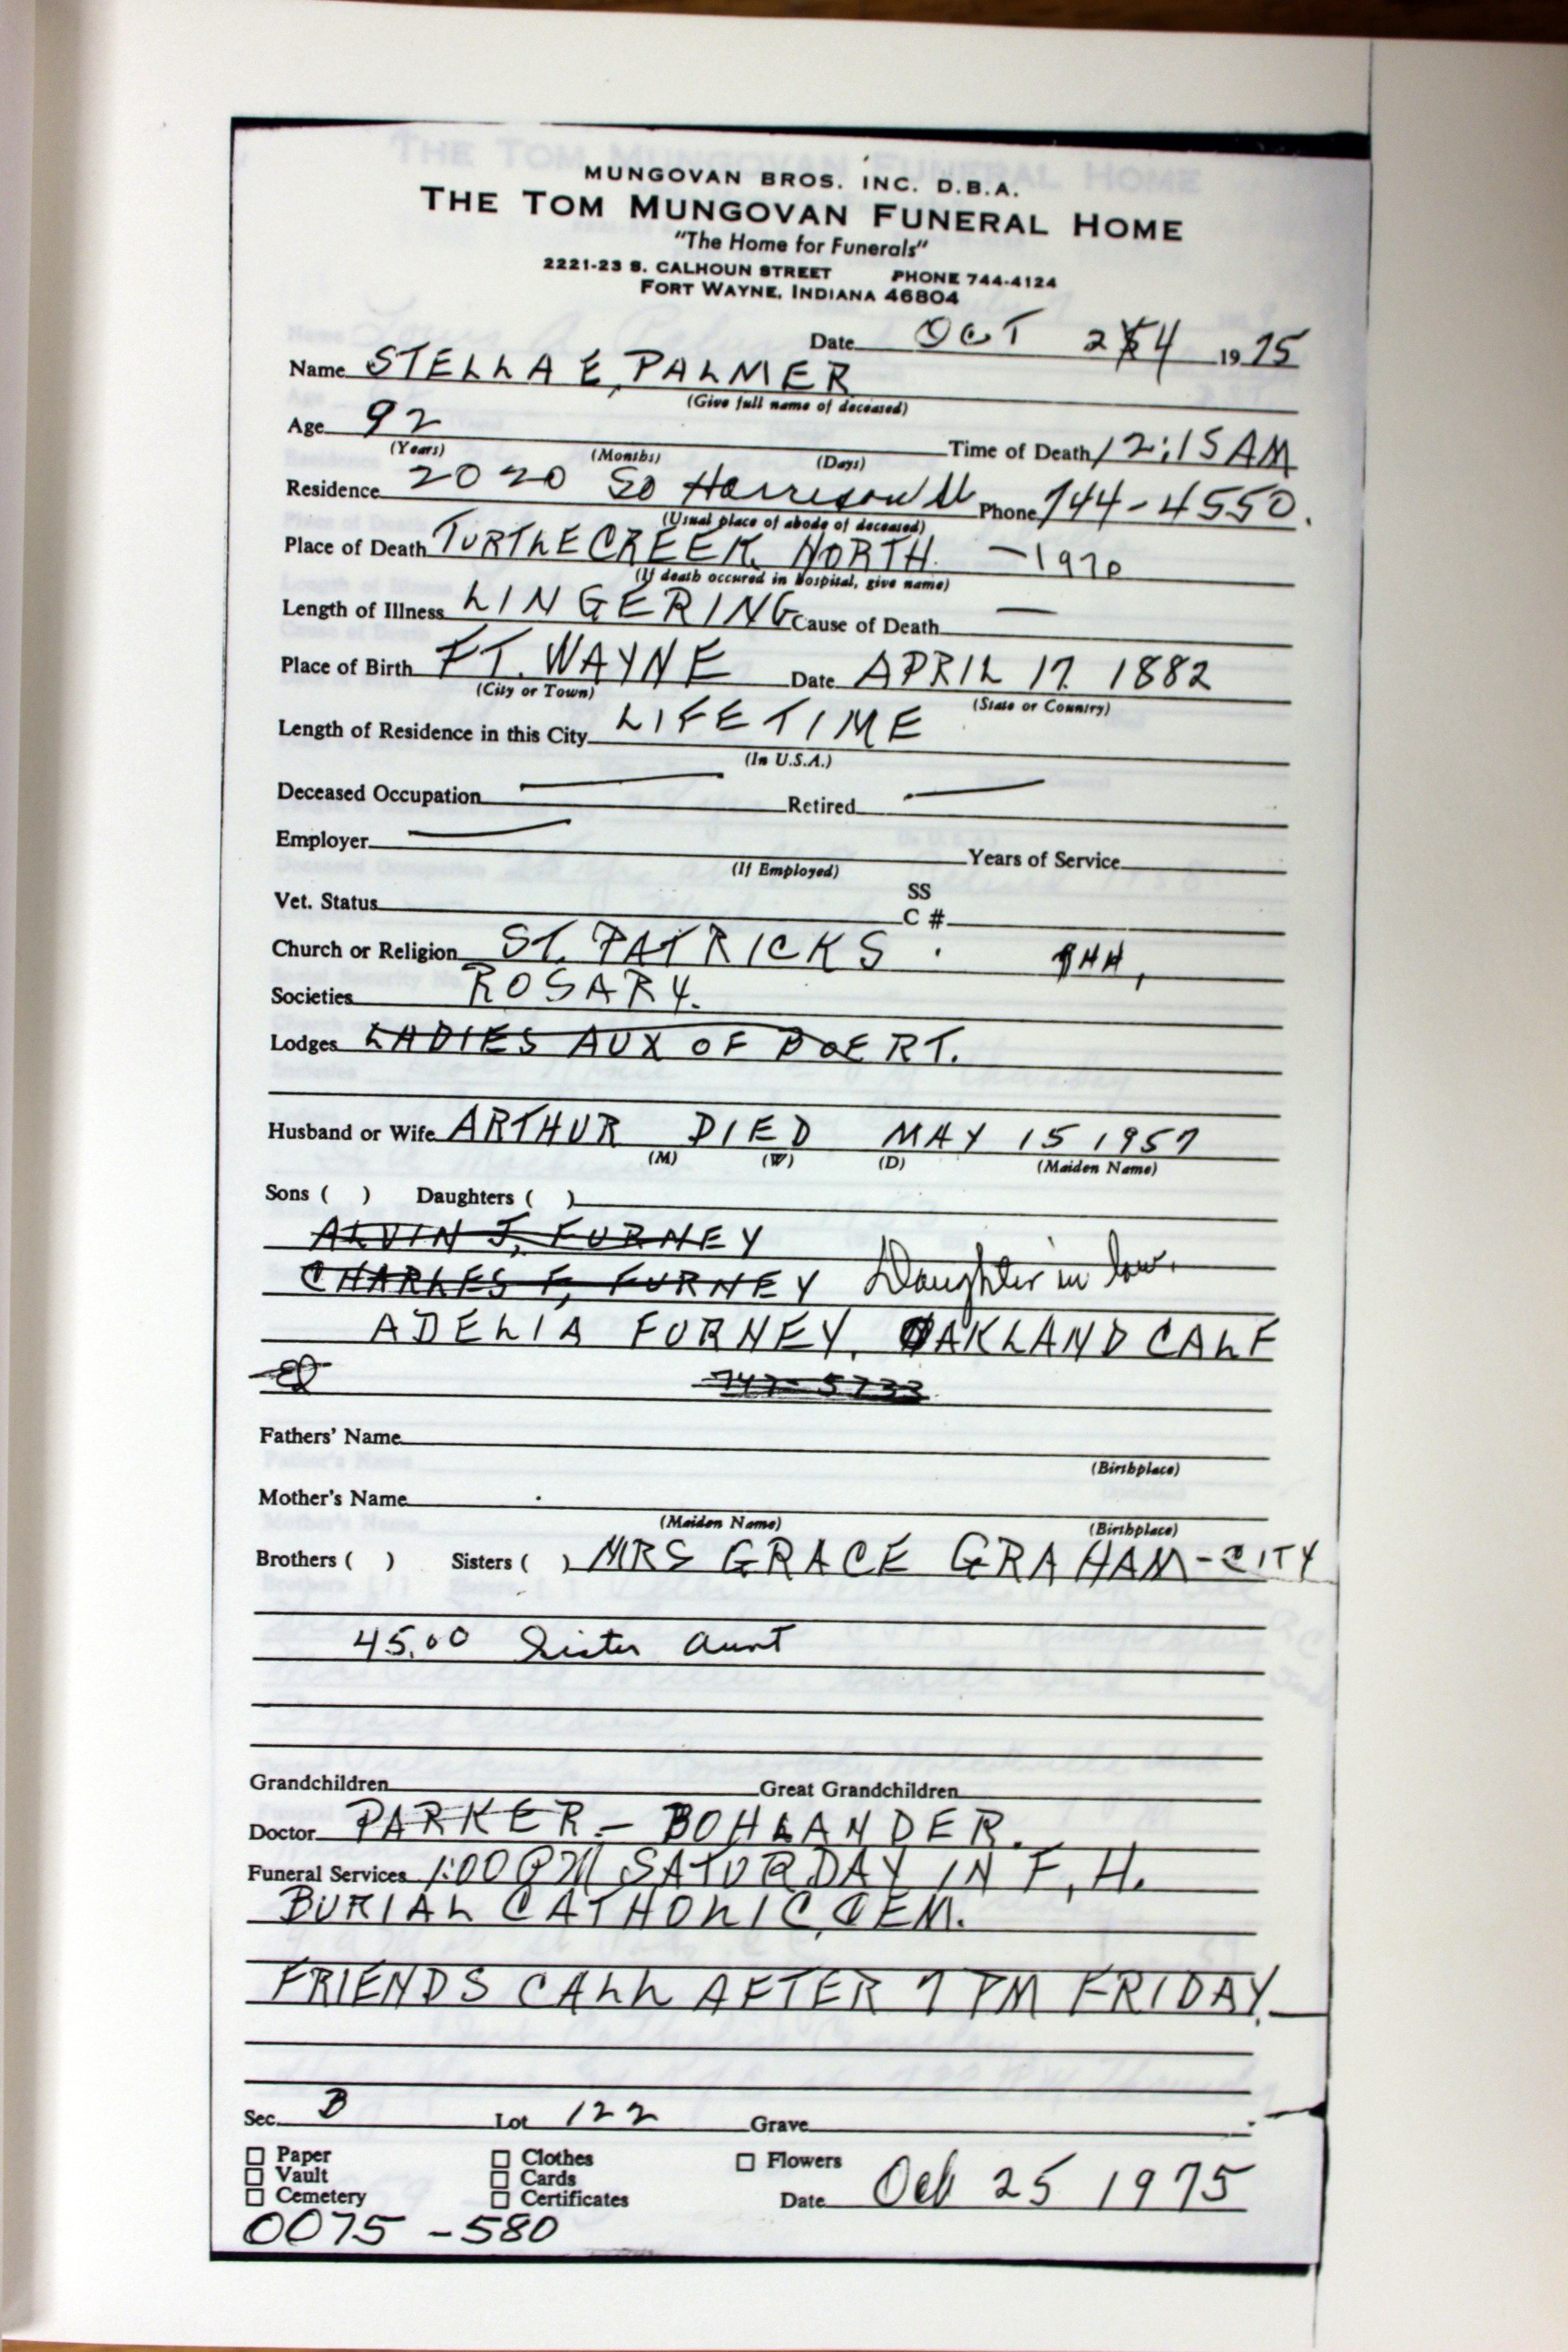 MUNGOVAN BROS. INC. D.B.A.
THE TOM MUNGOVAN FUNERAL HOME
"The Home for Funerals"
2221-23 S. CALHOUN STREET PHONE 744-4124
FORT WAYNE, INDIANA 46804
Date OCT 24 1975
Name STELLA E. PALMER
(Give full name of deceased)
Age 92 Time of Death 12:15 AM
(Years) (Months) (Days)
Residence 2020 So Harrison St Phone 744-4550.
(Usual place of abode of deceased)
Place of Death TURTLE CREEK NORTH. - 1970
(If death occured in hospital, give name)
Length of Illness LINGERING Cause of Death —
Place of Birth FT. WAYNE Date APRIL 17 1882
(City or Town) (State or Country)
Length of Residence in this City LIFETIME
(In U.S.A.)
Deceased Occupation — Retired —
Employer — Years of Service
(If Employed)
Vet. Status SS C #
Church or Religion ST. PATRICKS
Societies ROSARY.
Lodges LADIES AUX OF
Husband or Wife ARTHUR DIED MAY 15 1957
(M) (W) (D) (Maiden Name)
Sons ( ) Daughters ( )
ALVIN J. FURNEY
CHARLES F. FURNEY Daughter in law.
ADELIA FURNEY, OAKLAND CALF
747-5733
Fathers' Name
(Birthplace)
Mother's Name
(Maiden Name) (Birthplace)
Brothers ( ) Sisters ( ) MRS GRACE GRAHAM - CITY
45.00 Sister Aunt
Grandchildren Great Grandchildren
Doctor PARKER - BOHLANDER.
Funeral Services 1:00 PM SATURDAY IN F. H.
BURIAL CATHOLIC CEM.
FRIENDS CALL AFTER 7 PM FRIDAY.
Sec. B Lot 122 Grave
Paper Clothes Flowers
Vault Cards
Cemetery Certificates Date Oct 25 1975
0075-580